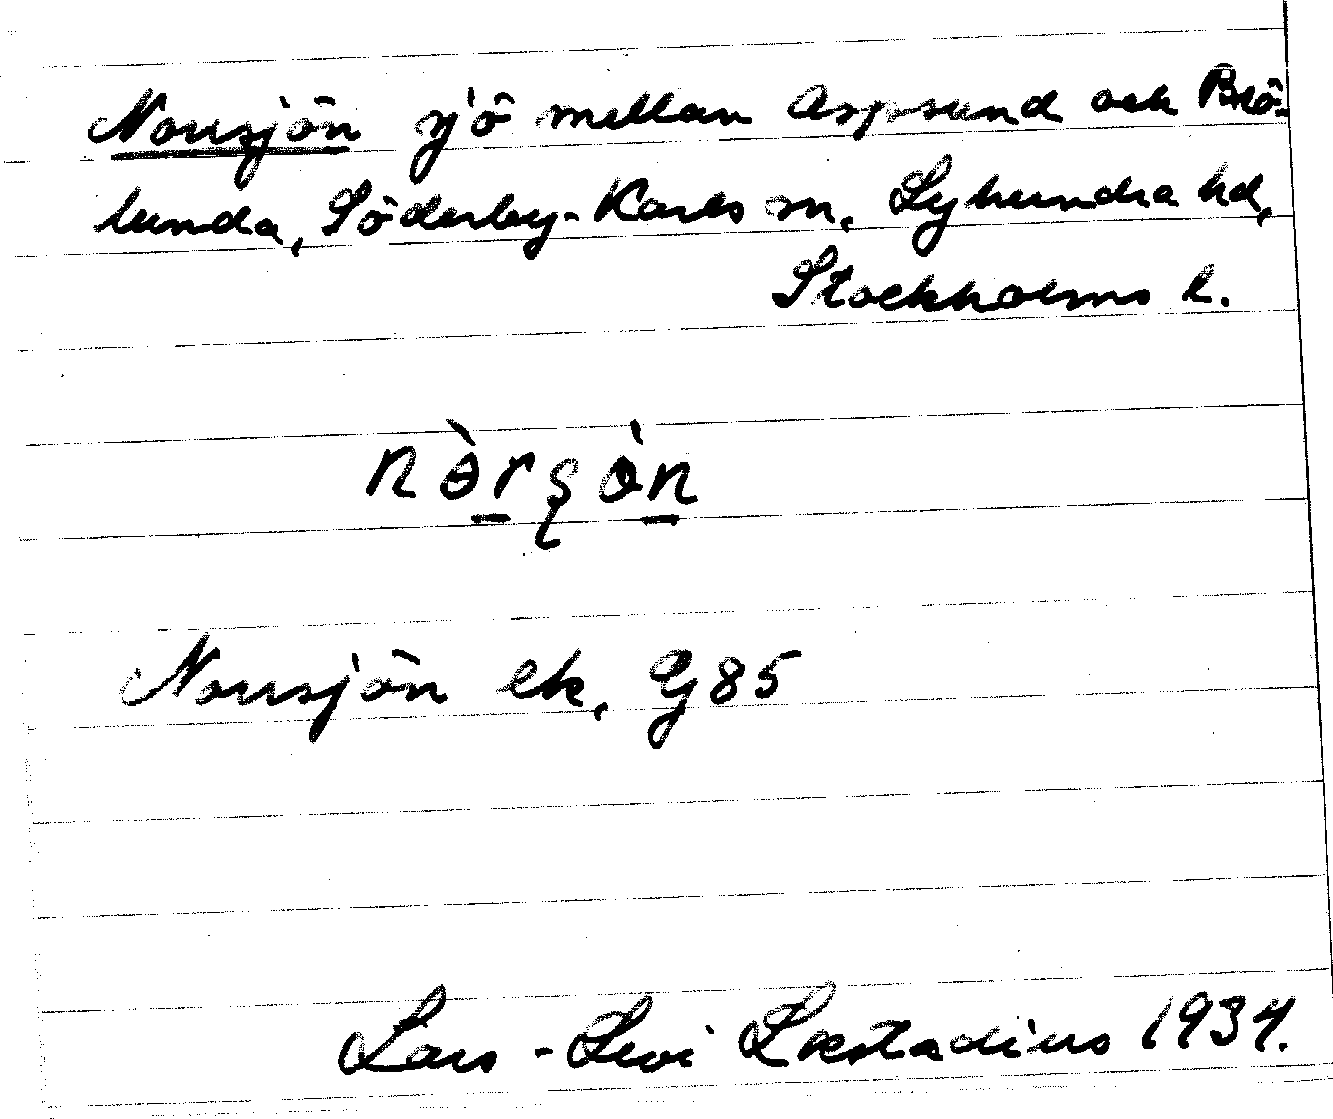 Norrsjön sjö mellan Aspsund och Brö-
lunda, Söderby-Karls sn, Lyhundra hd,
Stockholms l.
nɵ̀rʂɵ̀n
Norrsjön ek, G85
Lars-Levi Læstadius 1934.